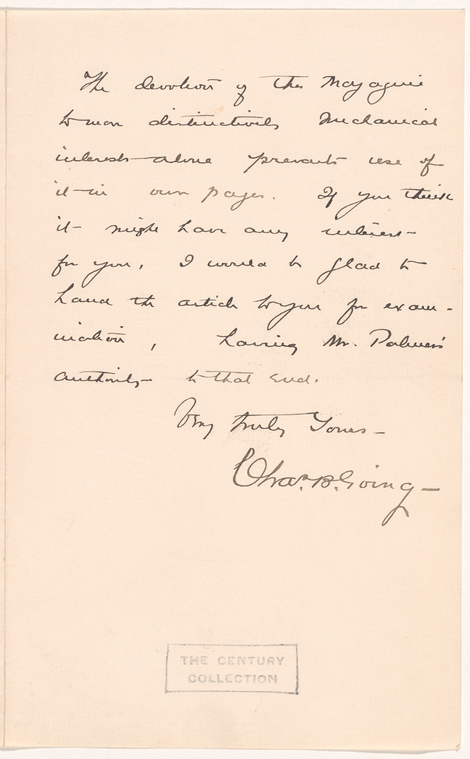 The devotion of the Magazine
to more distinctively mechanical
interests alone prevents use of
it in our pages. If you think
it might have any interest
for you, I would be glad to
hand the article to you for exam-
ination, having Mr. Palmer's
authority to that end.
Very truly Yours—
Chas. B. Going—
THE CENTURY
COLLECTION